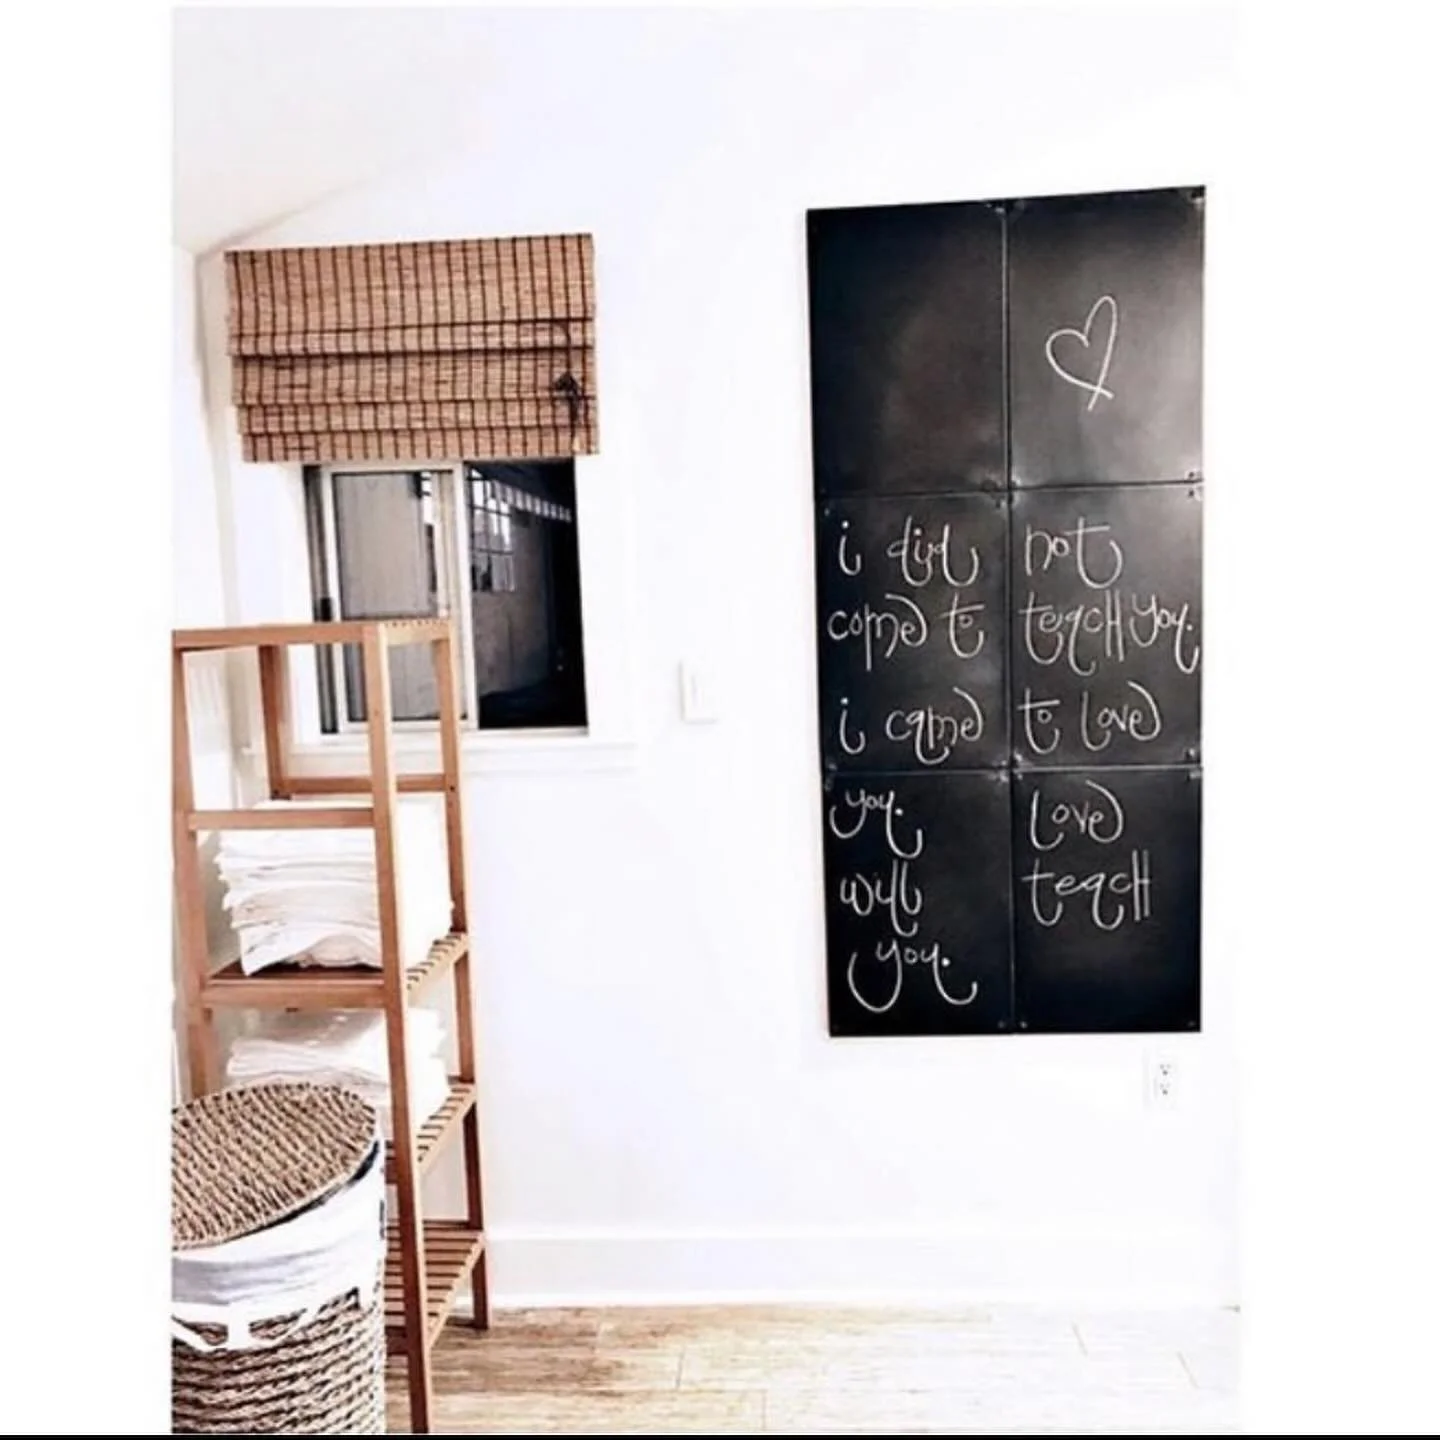 i did not
come to teach you.
i came to love
you. love
will teach
you.